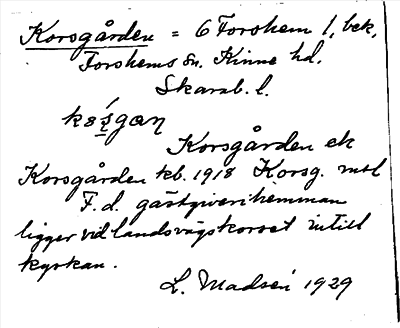 Korsgården = 6 Forshem 1, bek,
Forshems sn. Kinne hd.
Skarab. l.
Korsgården ek
Korsgården kb. 1918 Korsg. mtl
F.d. gästgiverihemman
ligger vid landsvägskorset intill
kyrkan.
L. Madsén 1929